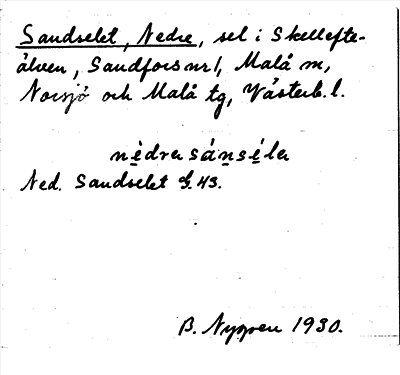 Sandselet, Nedre, sel i Skellefte-
älven, Sandfors nr 1, Malå sn,
Norsjö och Malå tg, Västerb. l.
nèdra sánséla
Ned. Sandselet G. 43.
B. Nyman 1930.